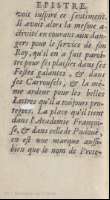 EPISTRE.
voit inspiré ce sentiment.
Il avoit alors la mesme a-
droite en courant aux dan-
gers pour le service de son
Roy, qu'il en a fait paroî-
tre pour ses plaisirs dans ses
Festes galantes, & dans
ses Carrousels, & la mé-
me ardeur pour les belles
Lettres qu'il a toûjours pro-
tegées. La place qu'il tient
dans l'Academie Françoi-
se, & dans celle de
en est une marque aussi-
bien que le nom de Prote-